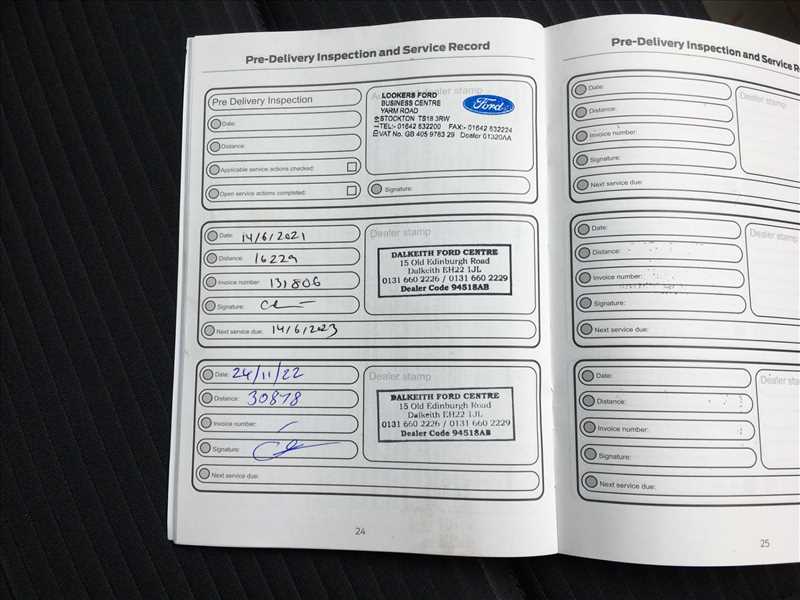 Pre-Delivery Inspection and Service Record
Pre Delivery Inspection
Date:
Distance:
Applicable service actions checked:
Open service actions completed:
LOOKERS FORD
BUSINESS CENTRE
YARM ROAD
STOCKTON TS18 3RW
TEL:- 01642 632200 FAX:- 01642 632224
VAT No. GB 405 9783 29 Dealer 01320AA
Ford
Signature:
Date: 14/6/2021
Distance: 16229
Invoice number: 131806
Signature:
Next service due: 14/6/2023
Dealer stamp
DALKEITH FORD CENTRE
15 Old Edinburgh Road
Dalkeith EH22 1JL
0131 660 2226 / 0131 660 2229
Dealer Code 94518AB
Date: 24/11/22
Distance: 30878
Invoice number:
Signature:
Next service due:
Dealer stamp
DALKEITH FORD CENTRE
15 Old Edinburgh Road
Dalkeith EH22 1JL
0131 660 2226 / 0131 660 2229
Dealer Code 94518AB
24
Pre-Delivery Inspection and Service R
Date:
Distance:
Invoice number:
Signature:
Next service due:
Dealer stamp
Date:
Distance:
Invoice number:
Signature:
Next service due:
Dealer stamp
Date:
Distance:
Invoice number:
Signature:
Next service due:
Dealer sta
25